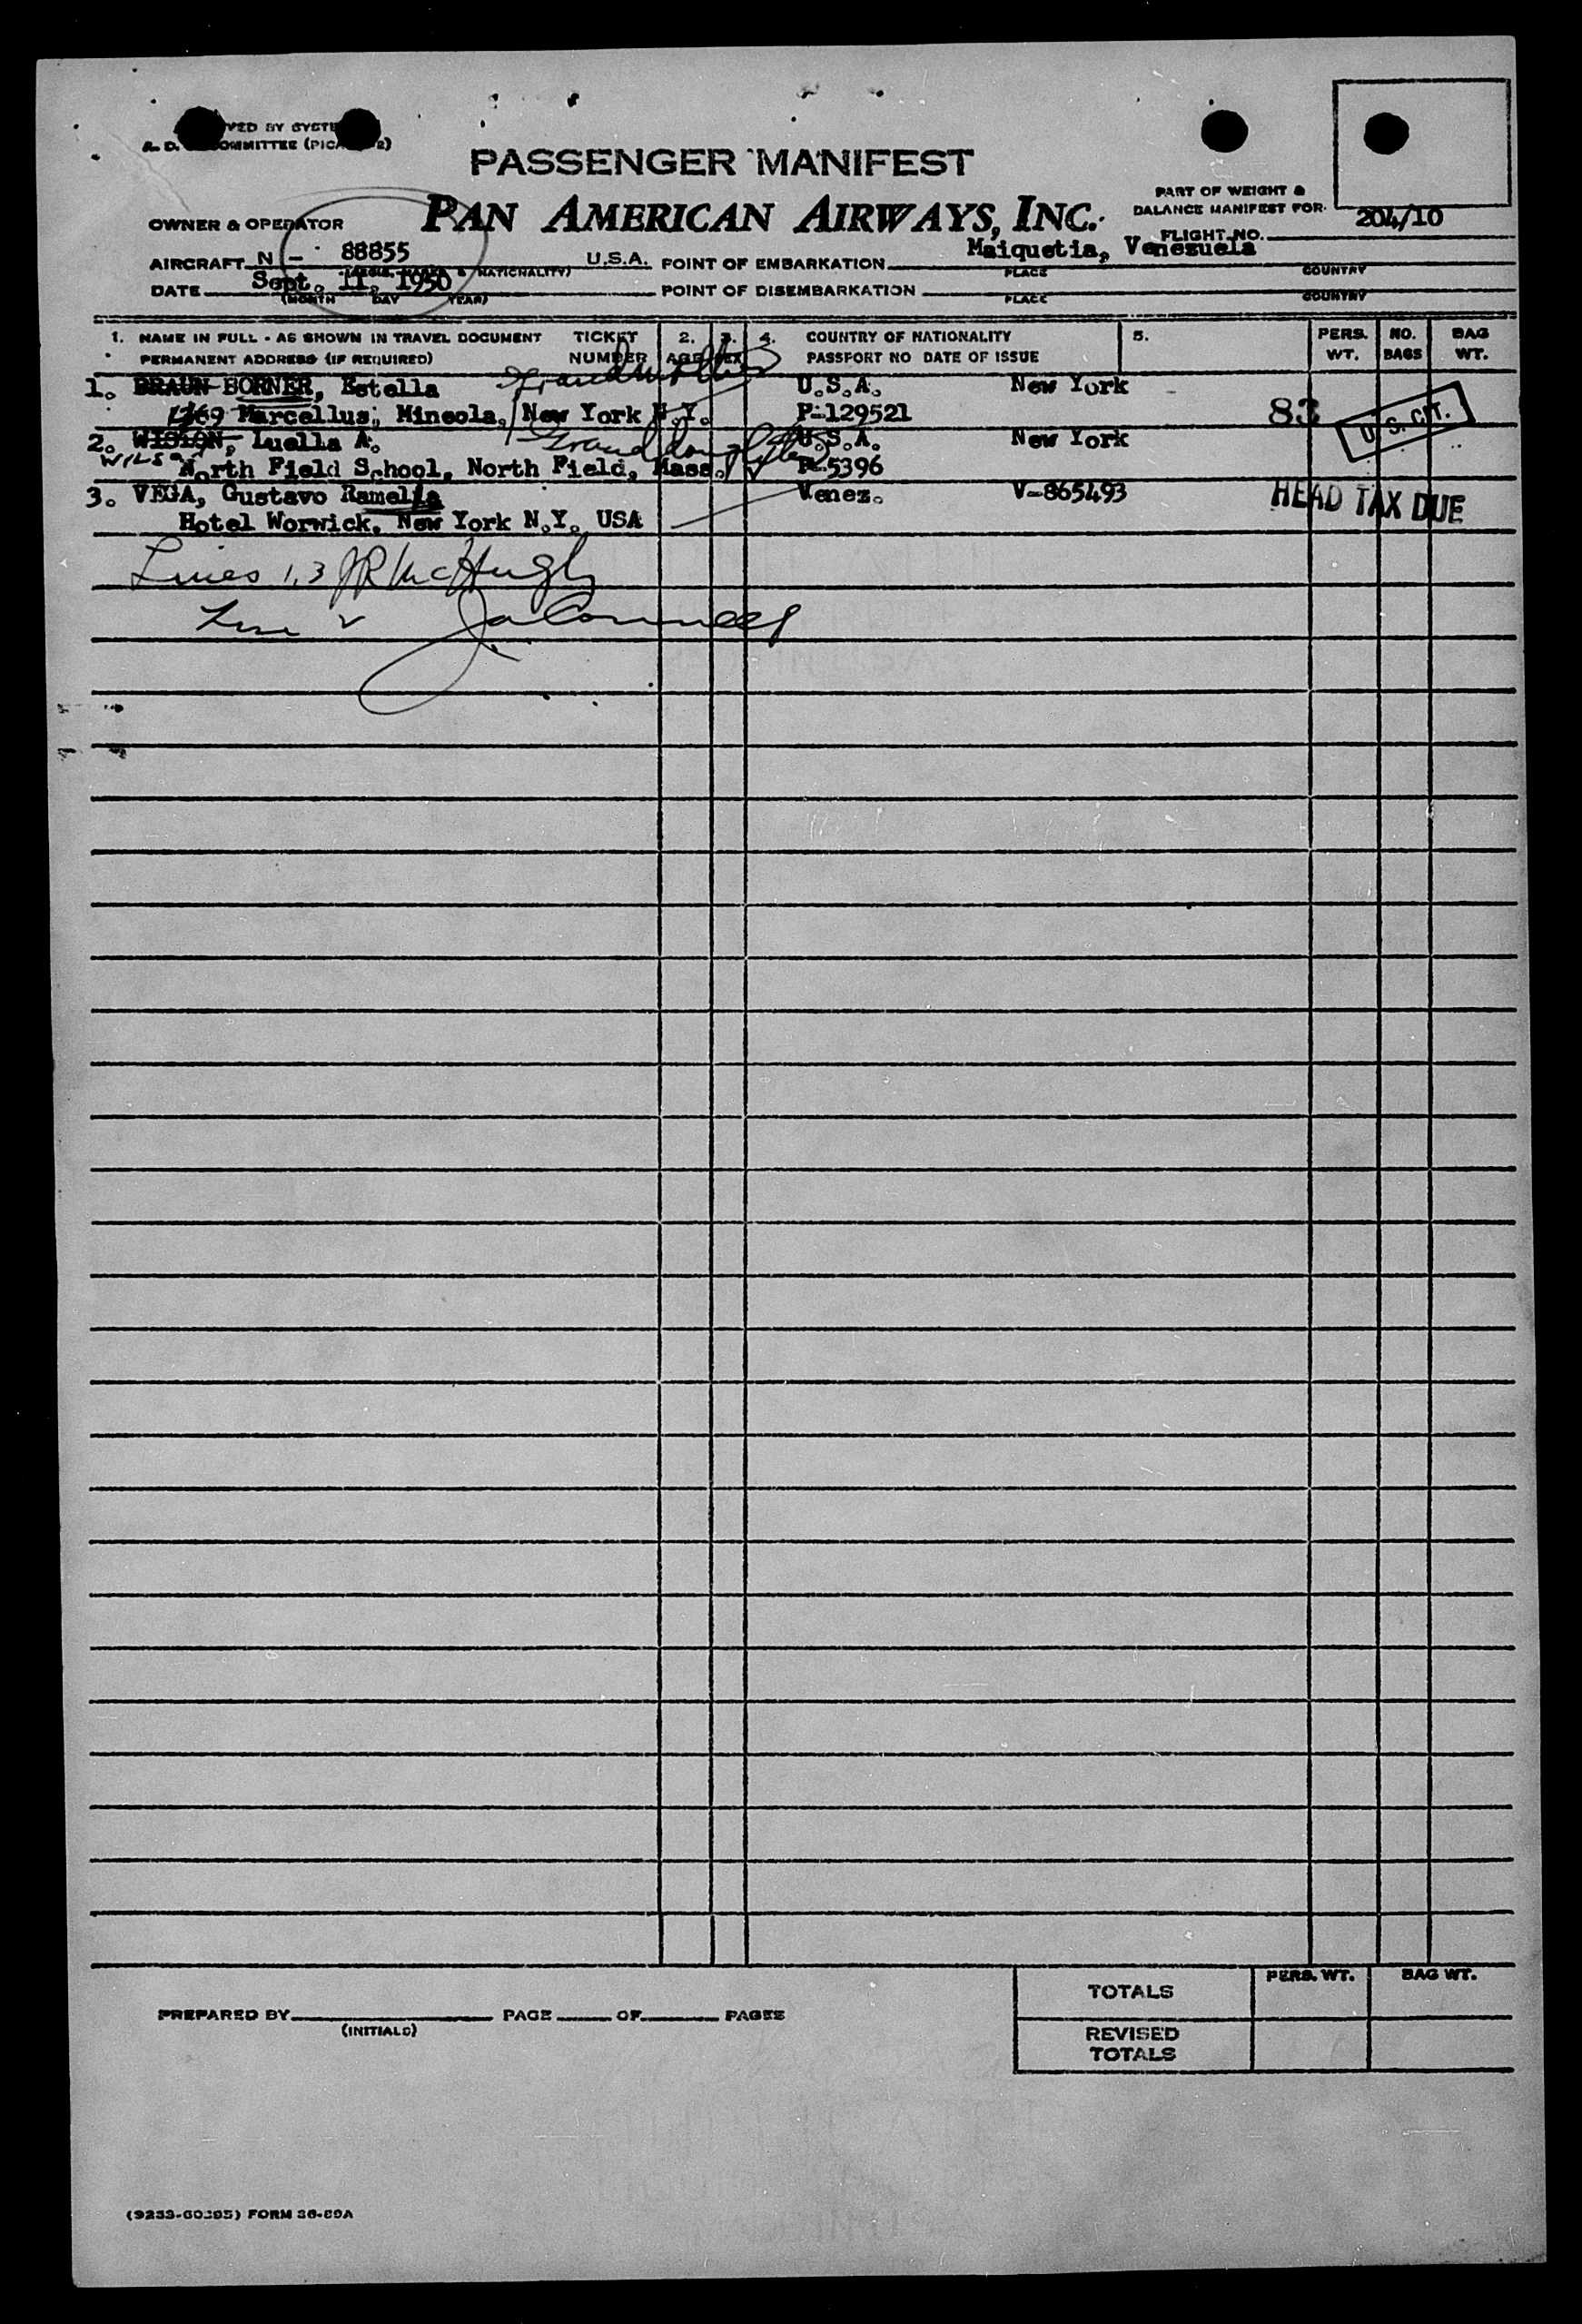 PASSENGER MANIFEST
PAN AMERICAN AIRWAYS, INC.
PART OF WEIGHT &
BALANCE MANIFEST FOR
FLIGHT NO. 204/10
OWNER & OPERATOR
AIRCRAFT N - 88855 U.S.A. POINT OF EMBARKATION Maiquetia, Venezuela
& NATIONALITY) PLACE COUNTRY
DATE Sept. 11, 1950 POINT OF DISEMBARKATION
(MONTH DAY YEAR) PLACE COUNTRY
1. NAME IN FULL - AS SHOWN IN TRAVEL DOCUMENT TICKET 2. 3. 4. COUNTRY OF NATIONALITY 5. PERS. NO. BAG
PERMANENT ADDRESS (IF REQUIRED) NUMBER AGE SEX PASSPORT NO DATE OF ISSUE WT. BAGS WT.
1. BRAUN BORNER, Estella Grandmother U.S.A. New York
Marcellus, Mineola, New York N.Y. P-129521 83 U.S. CIT.
2. WISLON, Luella A. Granddaughter U.S.A. New York
WILSON North Field School, North Field, Mass. P-5396
3. VEGA, Gustavo Ramella Venez. V-865493 HEAD TAX DUE
Hotel Worwick, New York N.Y. USA
Lines 1,3 JR McHugh
Line 2
TOTALS PERS. WT. BAG WT.
PREPARED BY PAGE OF PAGES
(INITIALS)
REVISED
TOTALS